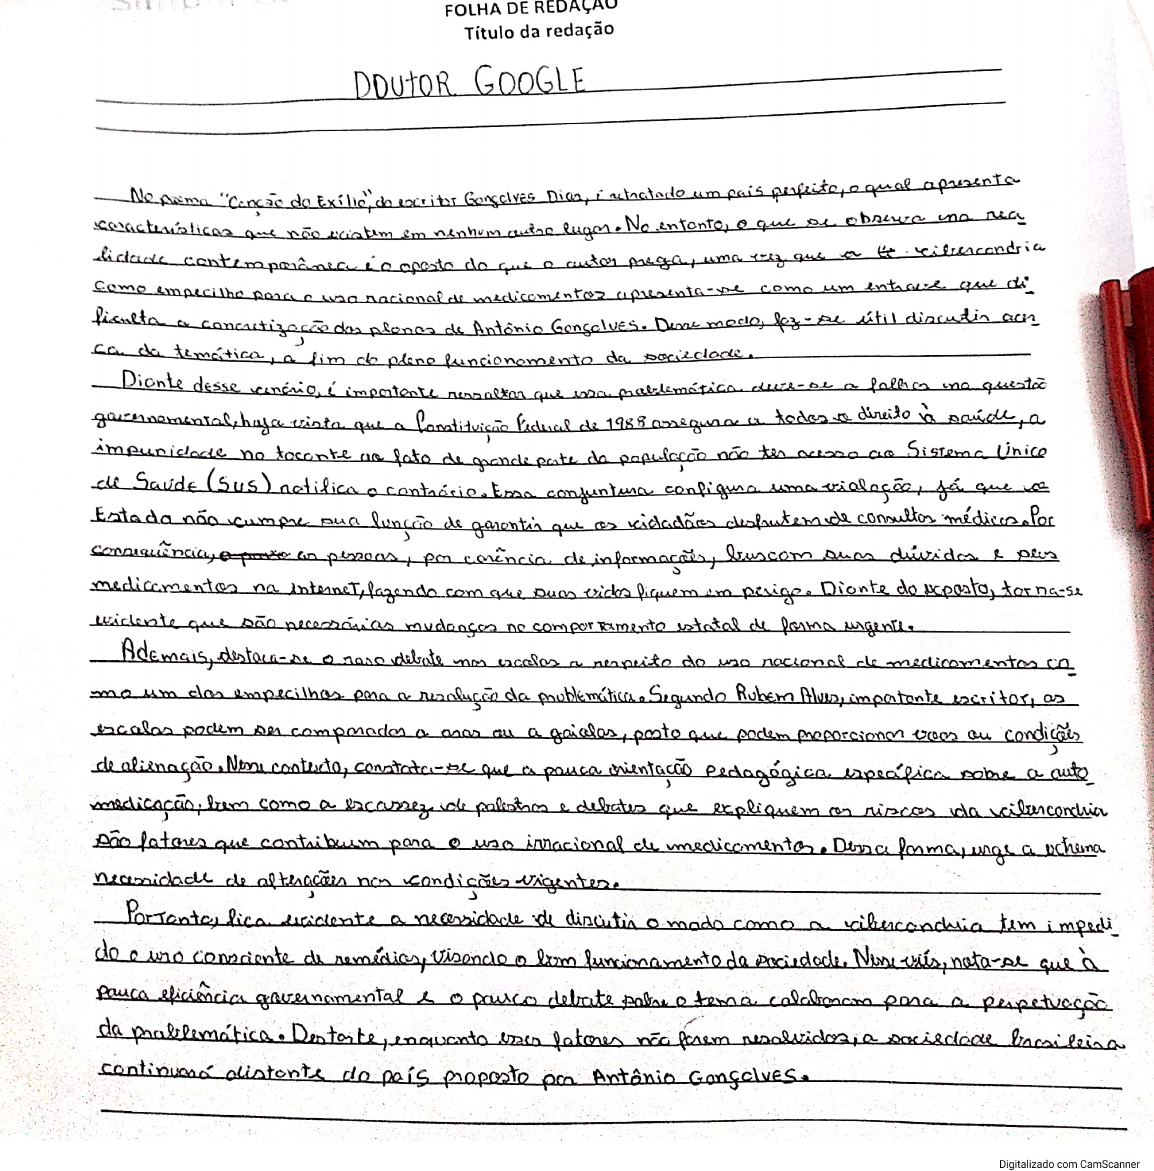 FOLHA DE REDAÇÃO
Título da redação
DOUTOR GOOGLE
No poema "Canção do Exílio", do escritor Gonçalves Dias, é retratado um país perfeito, o qual apresenta
características que não existem em nenhum outro lugar. No entanto, o que se observa na rea
lidade contemporânea é o oposto do que o autor prega, uma vez que a cibercondria
como empecilho para o uso racional de medicamentos apresenta-se como um entrave que di-
ficulta a concretização dos planos de Antônio Gonçalves. Desse modo, faz-se útil discutir acer
ca da temática, a fim do pleno funcionamento da sociedade.
Diante desse cenário, é importante ressaltar que essa problemática deve-se a falhas na questão
governamental, haja vista que a Constituição Federal de 1988 assegura a todos o direito à saúde, a
impunidade no tocante ao fato de grande parte da população não ter acesso ao Sistema Único
de Saúde (SUS) notifica o contrário. Essa conjuntura configura uma violação, já que o
Estado não cumpre sua função de garantir que os cidadãos desfrutem de consultas médicas. Por
consequência, as pessoas, por carência de informações, buscam suas dúvidas e seus
medicamentos na internet, fazendo com que suas vidas fiquem em perigo. Diante do exposto, torna-se
evidente que são necessárias mudanças no comportamento estatal de forma urgente.
Ademais, destaca-se o raso debate nas escolas a respeito do uso racional de medicamentos co
mo um dos empecilhos para a resolução da problemática. Segundo Rubem Alves, importante escritor, as
escolas podem ser comparadas a asas ou a gaiolas, posto que podem proporcionar voos ou condições
de alienação. Nesse contexto, constata-se que a pouca orientação pedagógica específica sobre a auto
medicação, bem como a escassez de palestras e debates que expliquem os riscos da cibercondria
são fatores que contribuem para o uso irracional de medicamentos. Dessa forma, urge a extrema
necessidade de alterações nas condições vigentes.
Portanto, fica evidente a necessidade de discutir o modo como a cibercondria tem impedi
do o uso consciente de remédios, visando o bom funcionamento da sociedade. Nesse viés, nota-se que à
pouca eficiência governamental e o pouco debate sobre o tema colaboram para a perpetuação
da problemática. Destarte, enquanto esses fatores não forem resolvidos, a sociedade brasileira
continuará distante do país proposto por Antônio Gonçalves.
Digitalizado com CamScanner